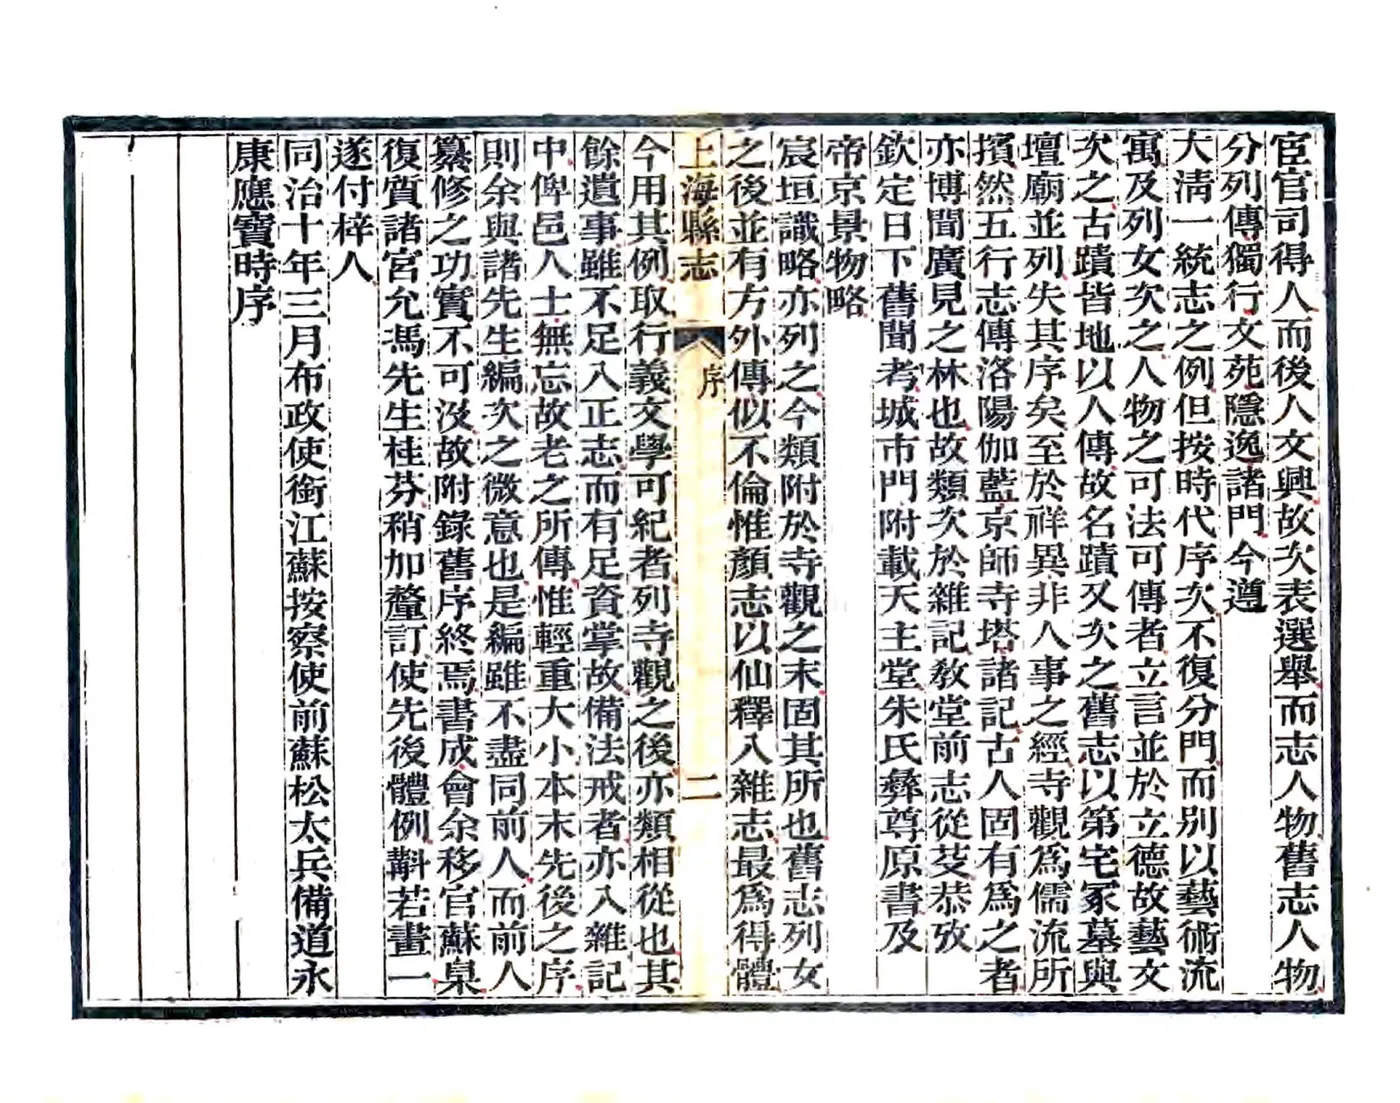 宦官司得人而後人文興故次表選舉而志人物舊志人物
分列傳獨行文苑隱逸諸門今遵
大清一統志之例但按時代序次不復分門而別以藝術流
寓及列女次之人物之可法可傳者立言並於立德故藝文
次之古蹟皆地以人傳故名蹟又次之舊志以第宅冢墓與
壇廟並列失其序矣至於祥異非人事之經寺觀爲儒流所
擯然五行志傳洛陽伽藍京師寺塔諸記古人固有爲之者
亦博聞廣見之林也故類次於雜記教堂前志從芟恭攷
欽定日下舊聞考城市門附載天主堂朱氏彝尊原書及
帝京景物略
宸垣識略亦列之今類附於寺觀之末固其所也舊志列女
之後並有方外傳似不倫惟顏志以仙釋入雜志最爲得體
上海縣志
序
二
今用其例取行義文學可紀者列寺觀之後亦類相從也其
餘遺事雖不足入正志而有足資掌故備法戒者亦入雜記
中俾邑人士無忘故老之所傳惟輕重大小本末先後之序
則余與諸先生編次之微意也是編雖不盡同前人而前人
纂修之功實不可沒故附錄舊序終焉書成會余移官蘇臬
復質諸宮允馮先生桂芬稍加釐訂使先後體例斠若畫一
遂付梓人
同治十年三月布政使銜江蘇按察使前蘇松太兵備道永
康應寶時序